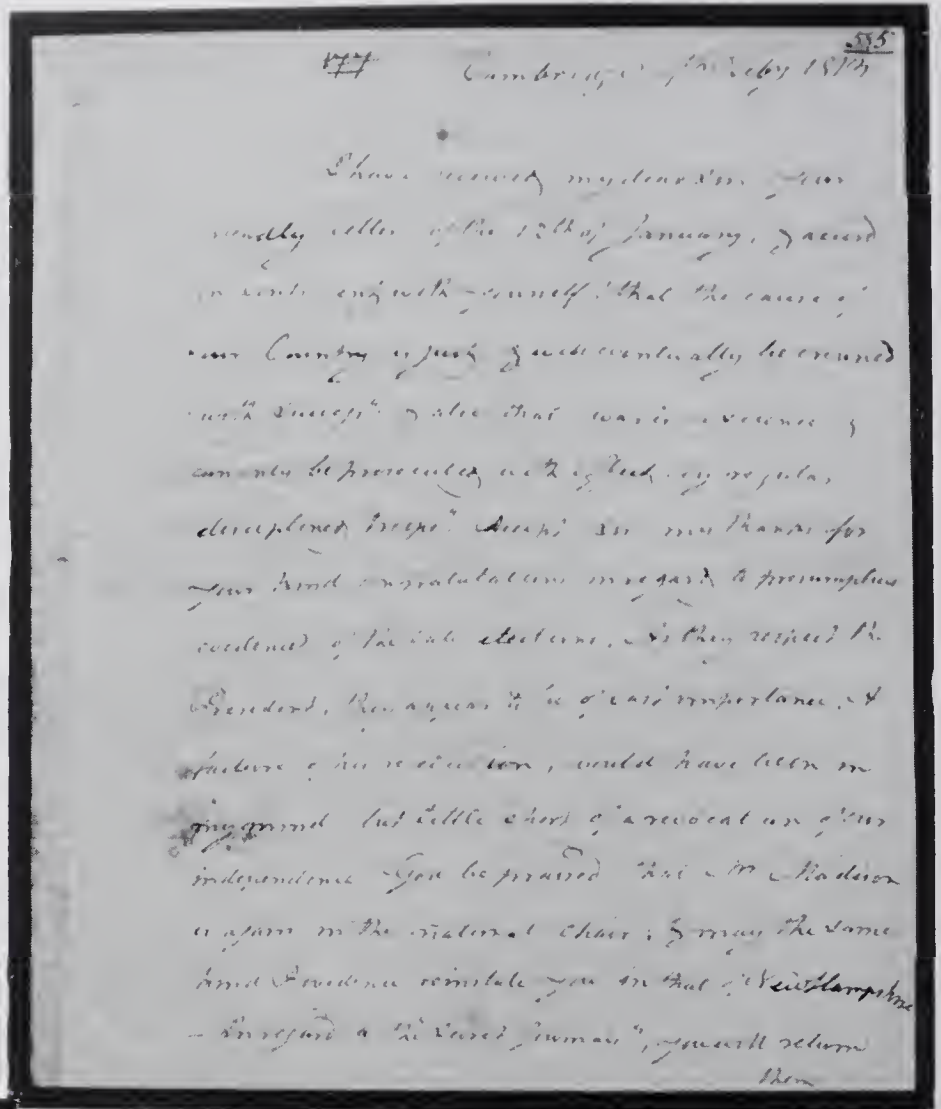 555
Cambridge Feby 1813
I have received my dear Sir your
friendly letter of the 12th of January, & accord
in senti ent with yourself "that the cause of
our Country is just & will eventually be crowned
with success" & also that war is a science &
can only be prosecuted with effect by regular
disciplined troops". Accept Sir my thanks for
your kind congratulations in regard to
evidence of the late elections. As they respect the
President, they appear to be of vast importance. A
failure of his reelection, would have been in
my mind but little short of a revocation of our
independence God be praised that Mr Madison
is again in the national chair, & may the same
kind Providence reinstate you in that of New Hampshire
In regard to the "Secret Journals", you will return
them